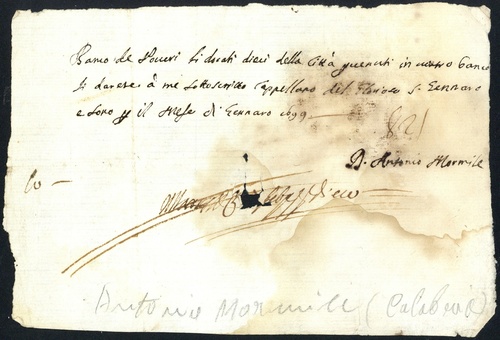 Banco de Poveri li docati dieci della Città pervenuti in vostro banco
li darete à me sottoscritto Cappellano del Glorioso S. Gennaro
e sono p il Mese di Gennaro 1699
821
D. Antonio Mormile
Co —
Antonio Mormile (Calabria)